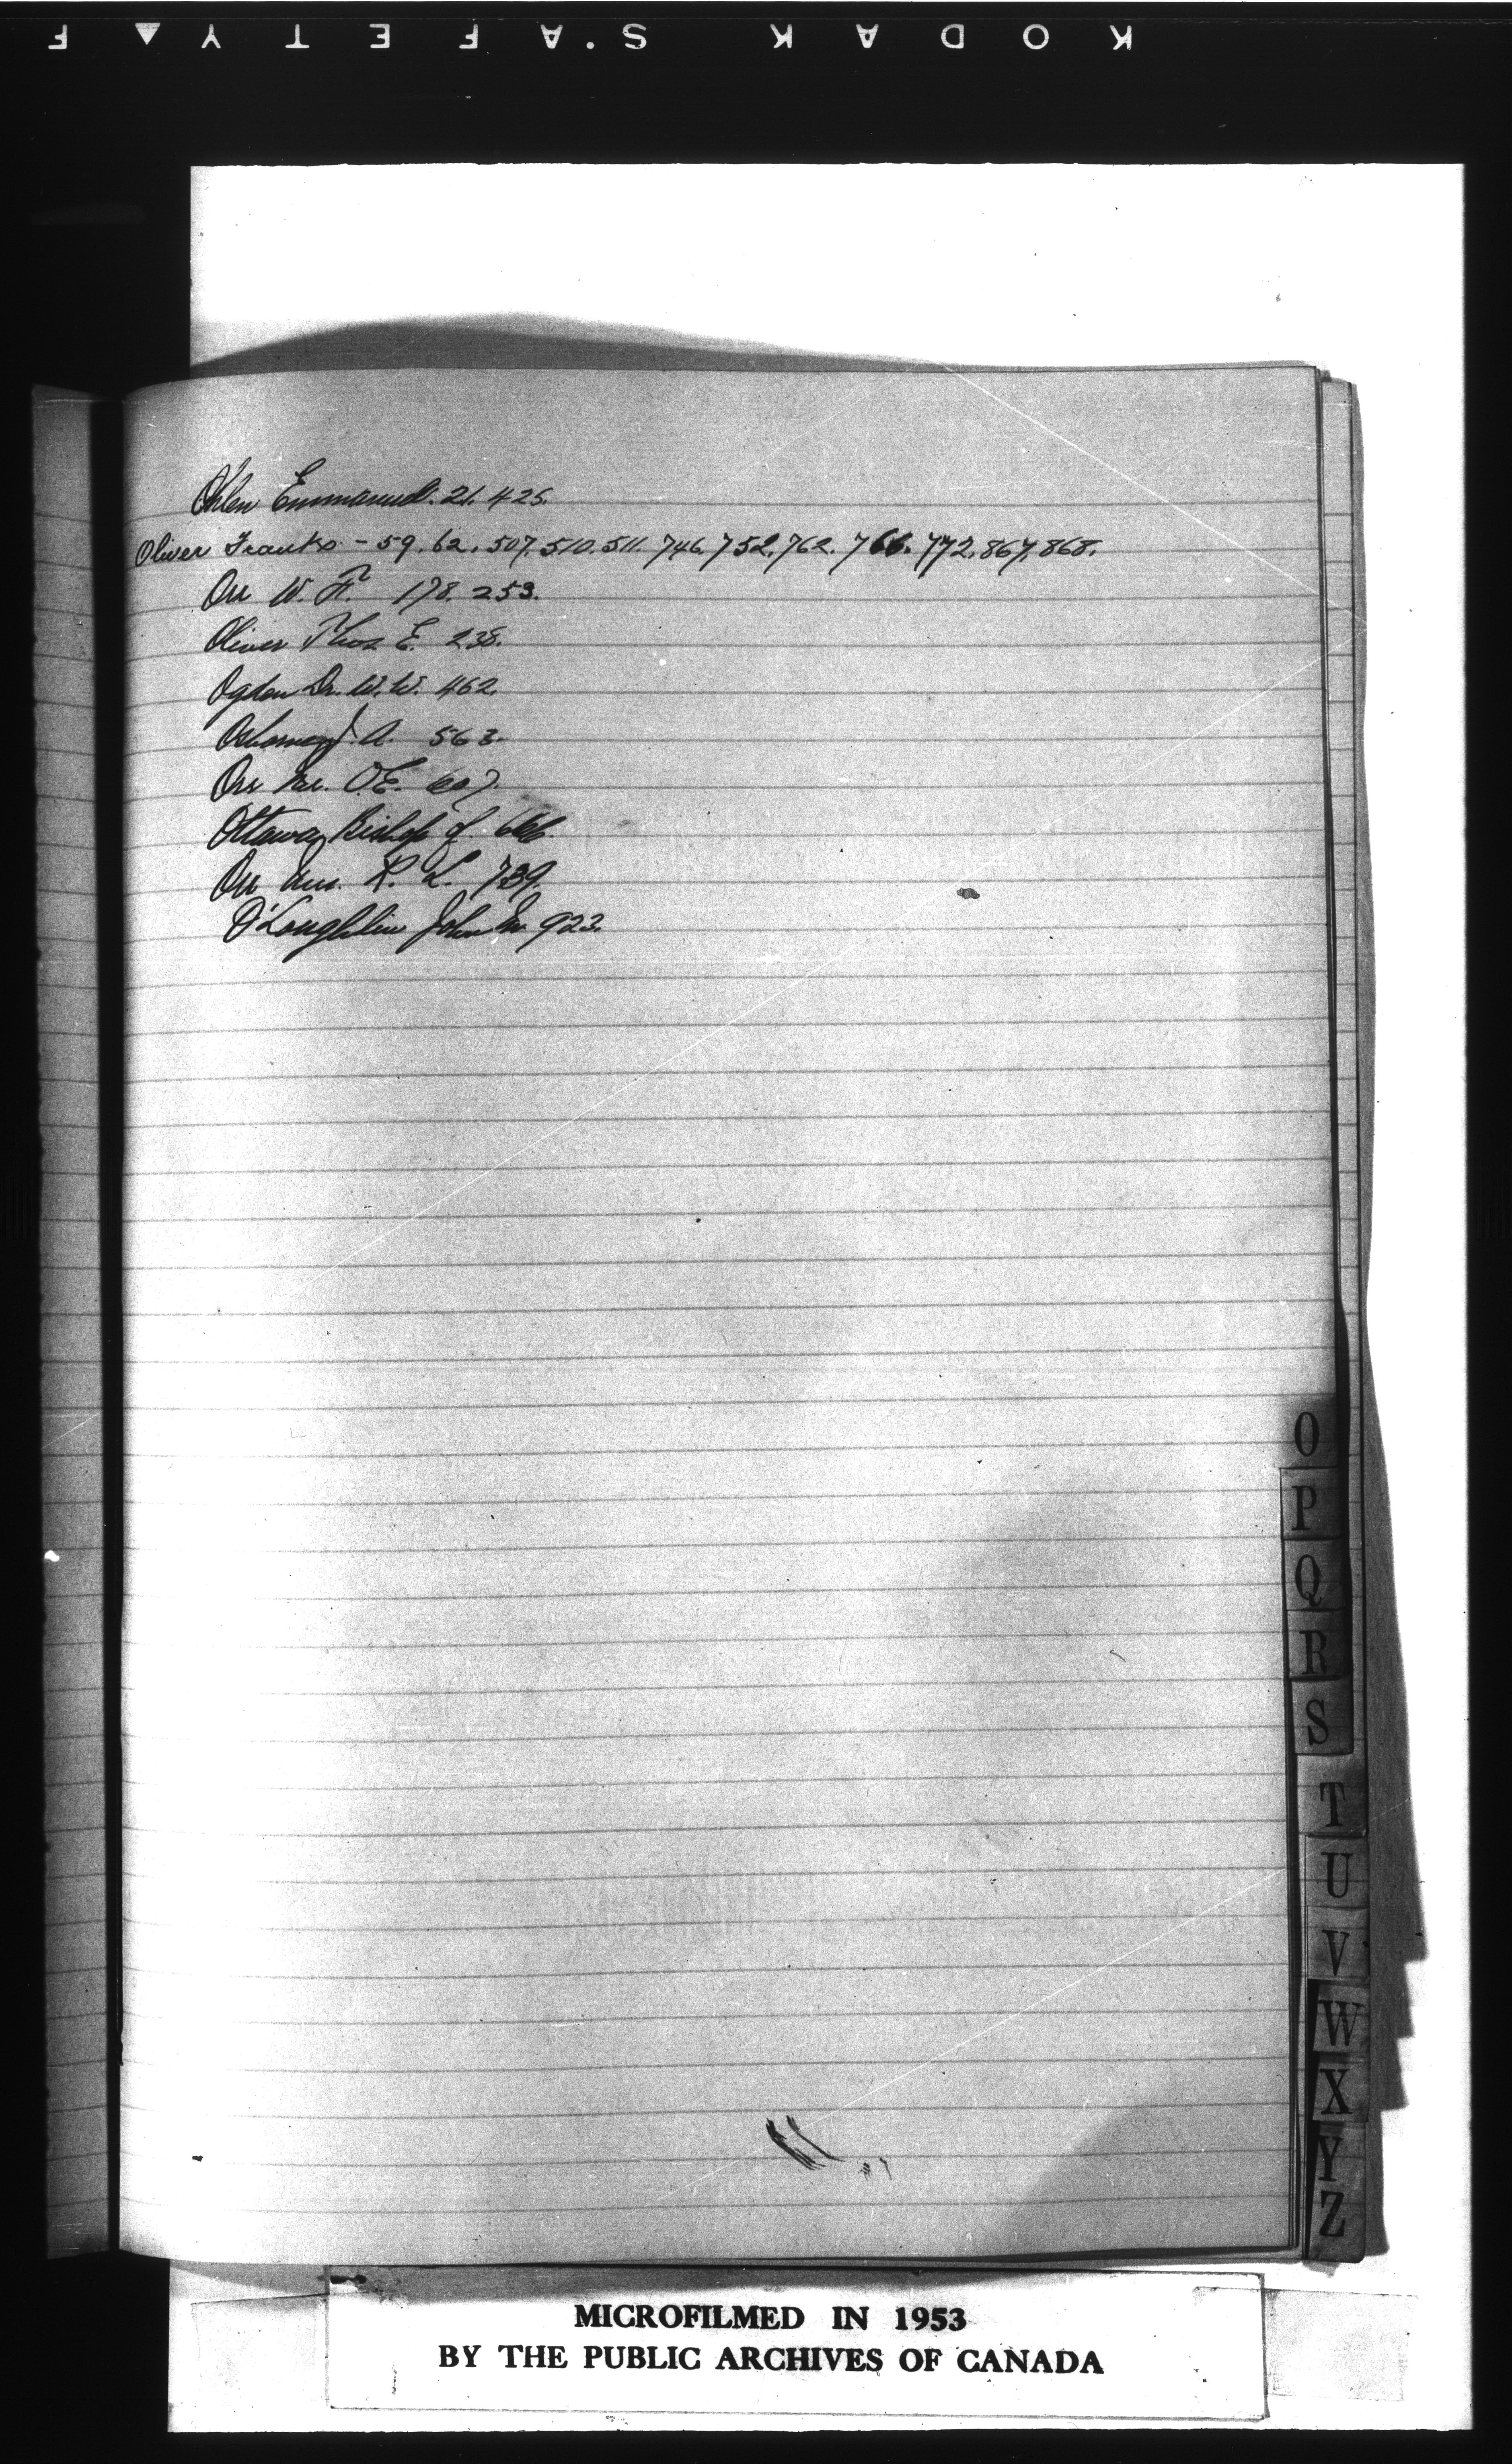 KODAK SAFETY F
Ohlen Emmanuel. 21. 425.
Oliver Franks - 59. 62. 507. 510. 511. 746. 752. 762. 766. 772. 867. 868.
Orr W. F. 178. 253.
Oliver Thos E. 238.
Ogden Dr. W. W. 462.
Osborne J. A. 563.
Orr O. E. 607.
Ottawa, Bishop of 666.
Orr R. L. 739.
O'Loughlin John M 923.
O
P
Q
R
S
T
U
V
W
X
Y
Z
MICROFILMED IN 1953
BY THE PUBLIC ARCHIVES OF CANADA